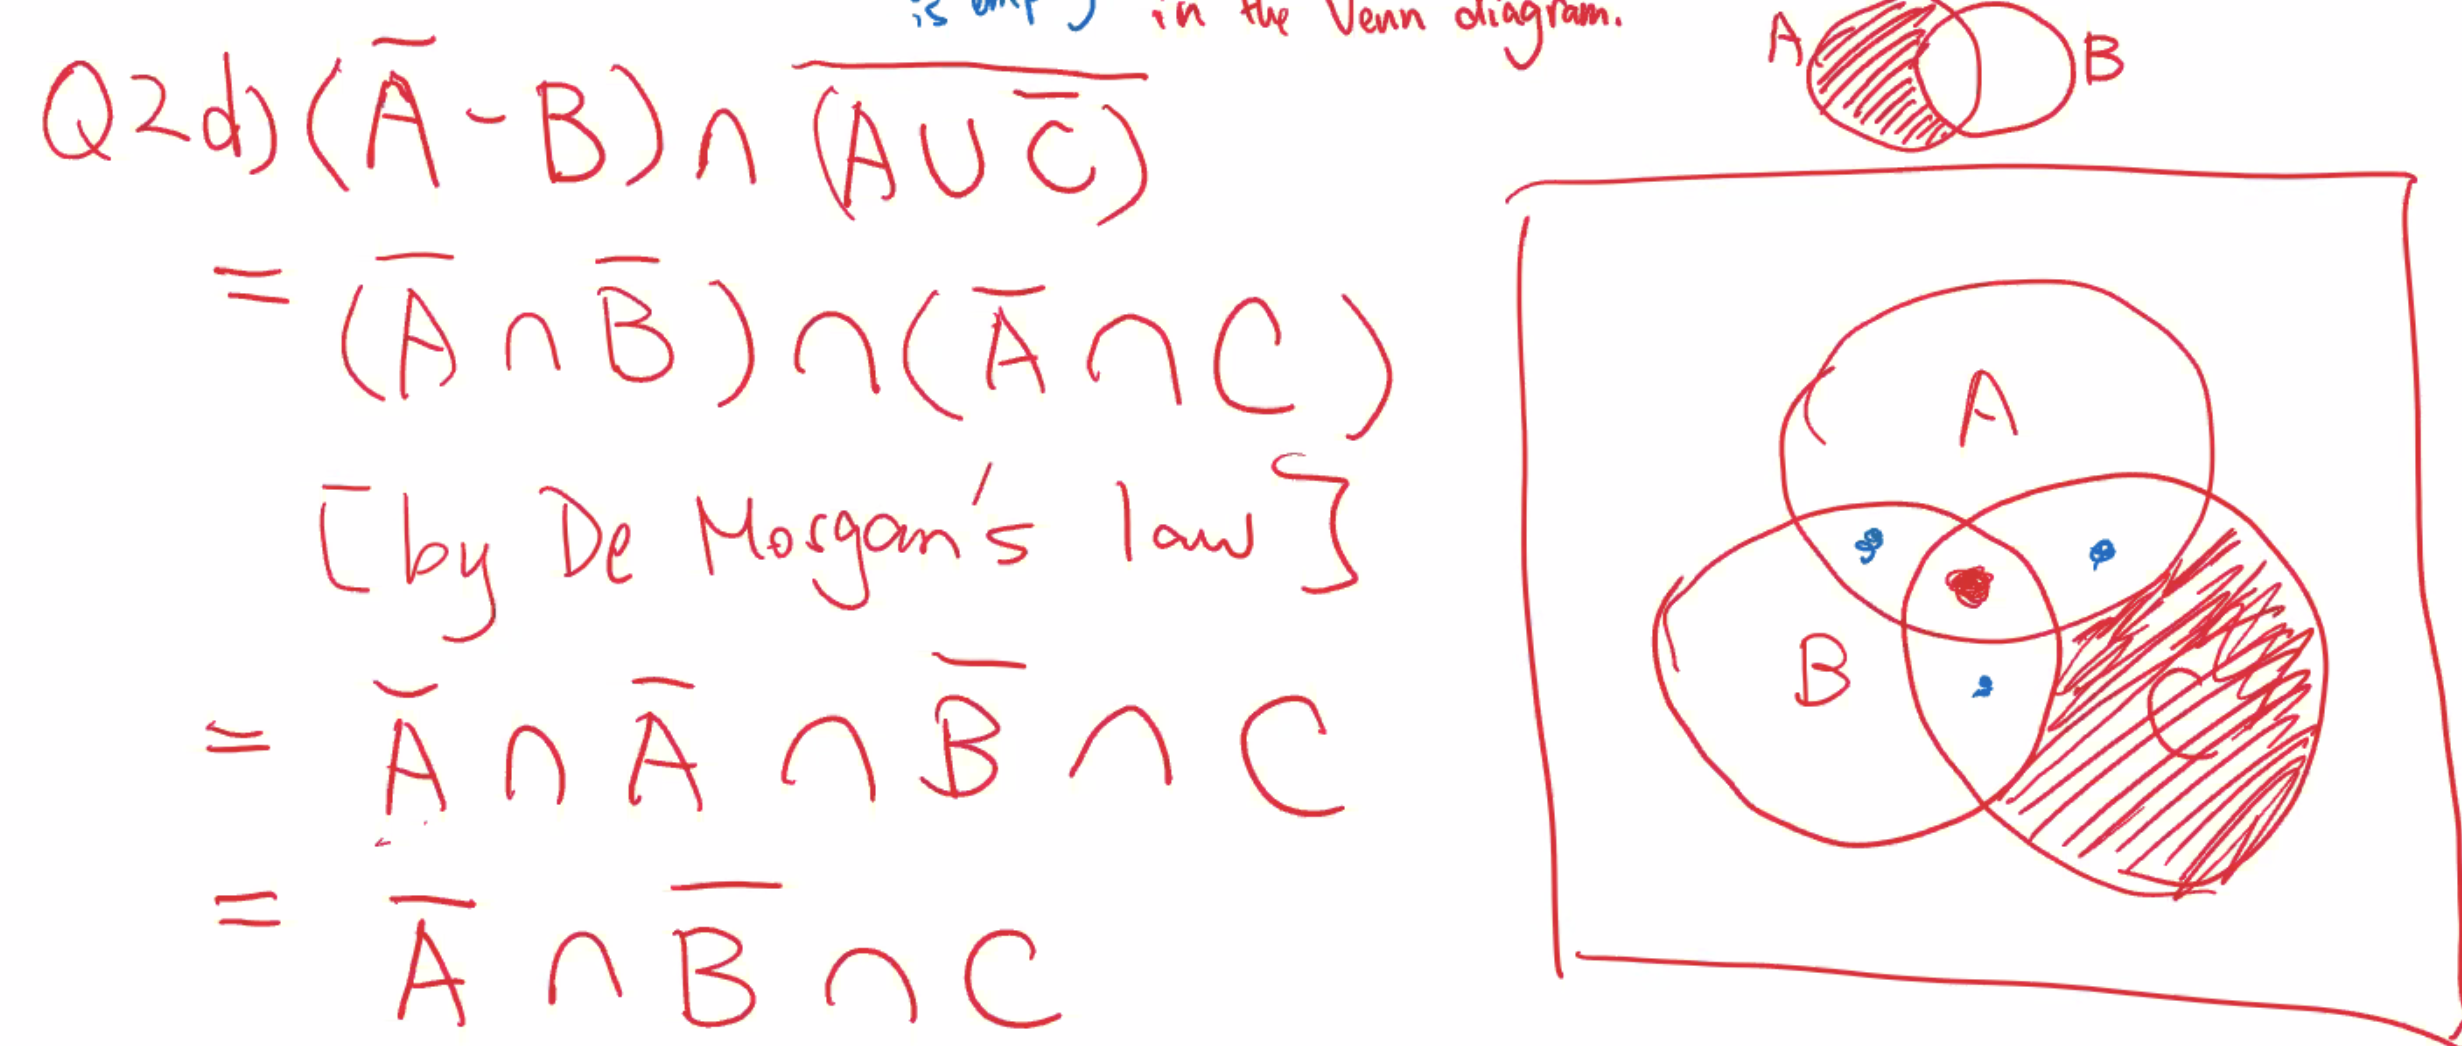 is empty in the Venn diagram.
A B
Q2d) (A̅ - B) ∩ (A ∪ C̅)̅
= (A̅ ∩ B̅) ∩ (A̅ ∩ C)
[by De Morgan's law]
= A̅ ∩ A̅ ∩ B̅ ∩ C
= A̅ ∩ B̅ ∩ C
A
B
C